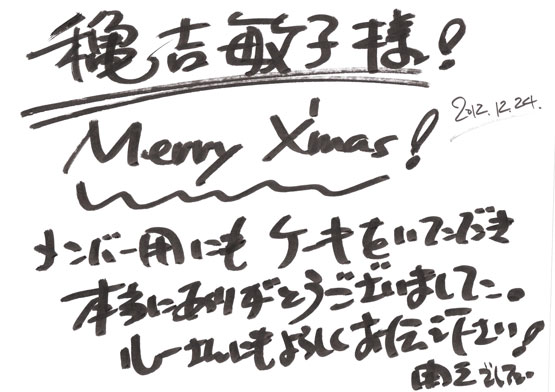 穐吉敏子様!
2012.12.24.
Merry X'mas!
メンバー用にもケーキをいただき
本当にありがとうございました。
ルーさんにもよろしくお伝え下さい!